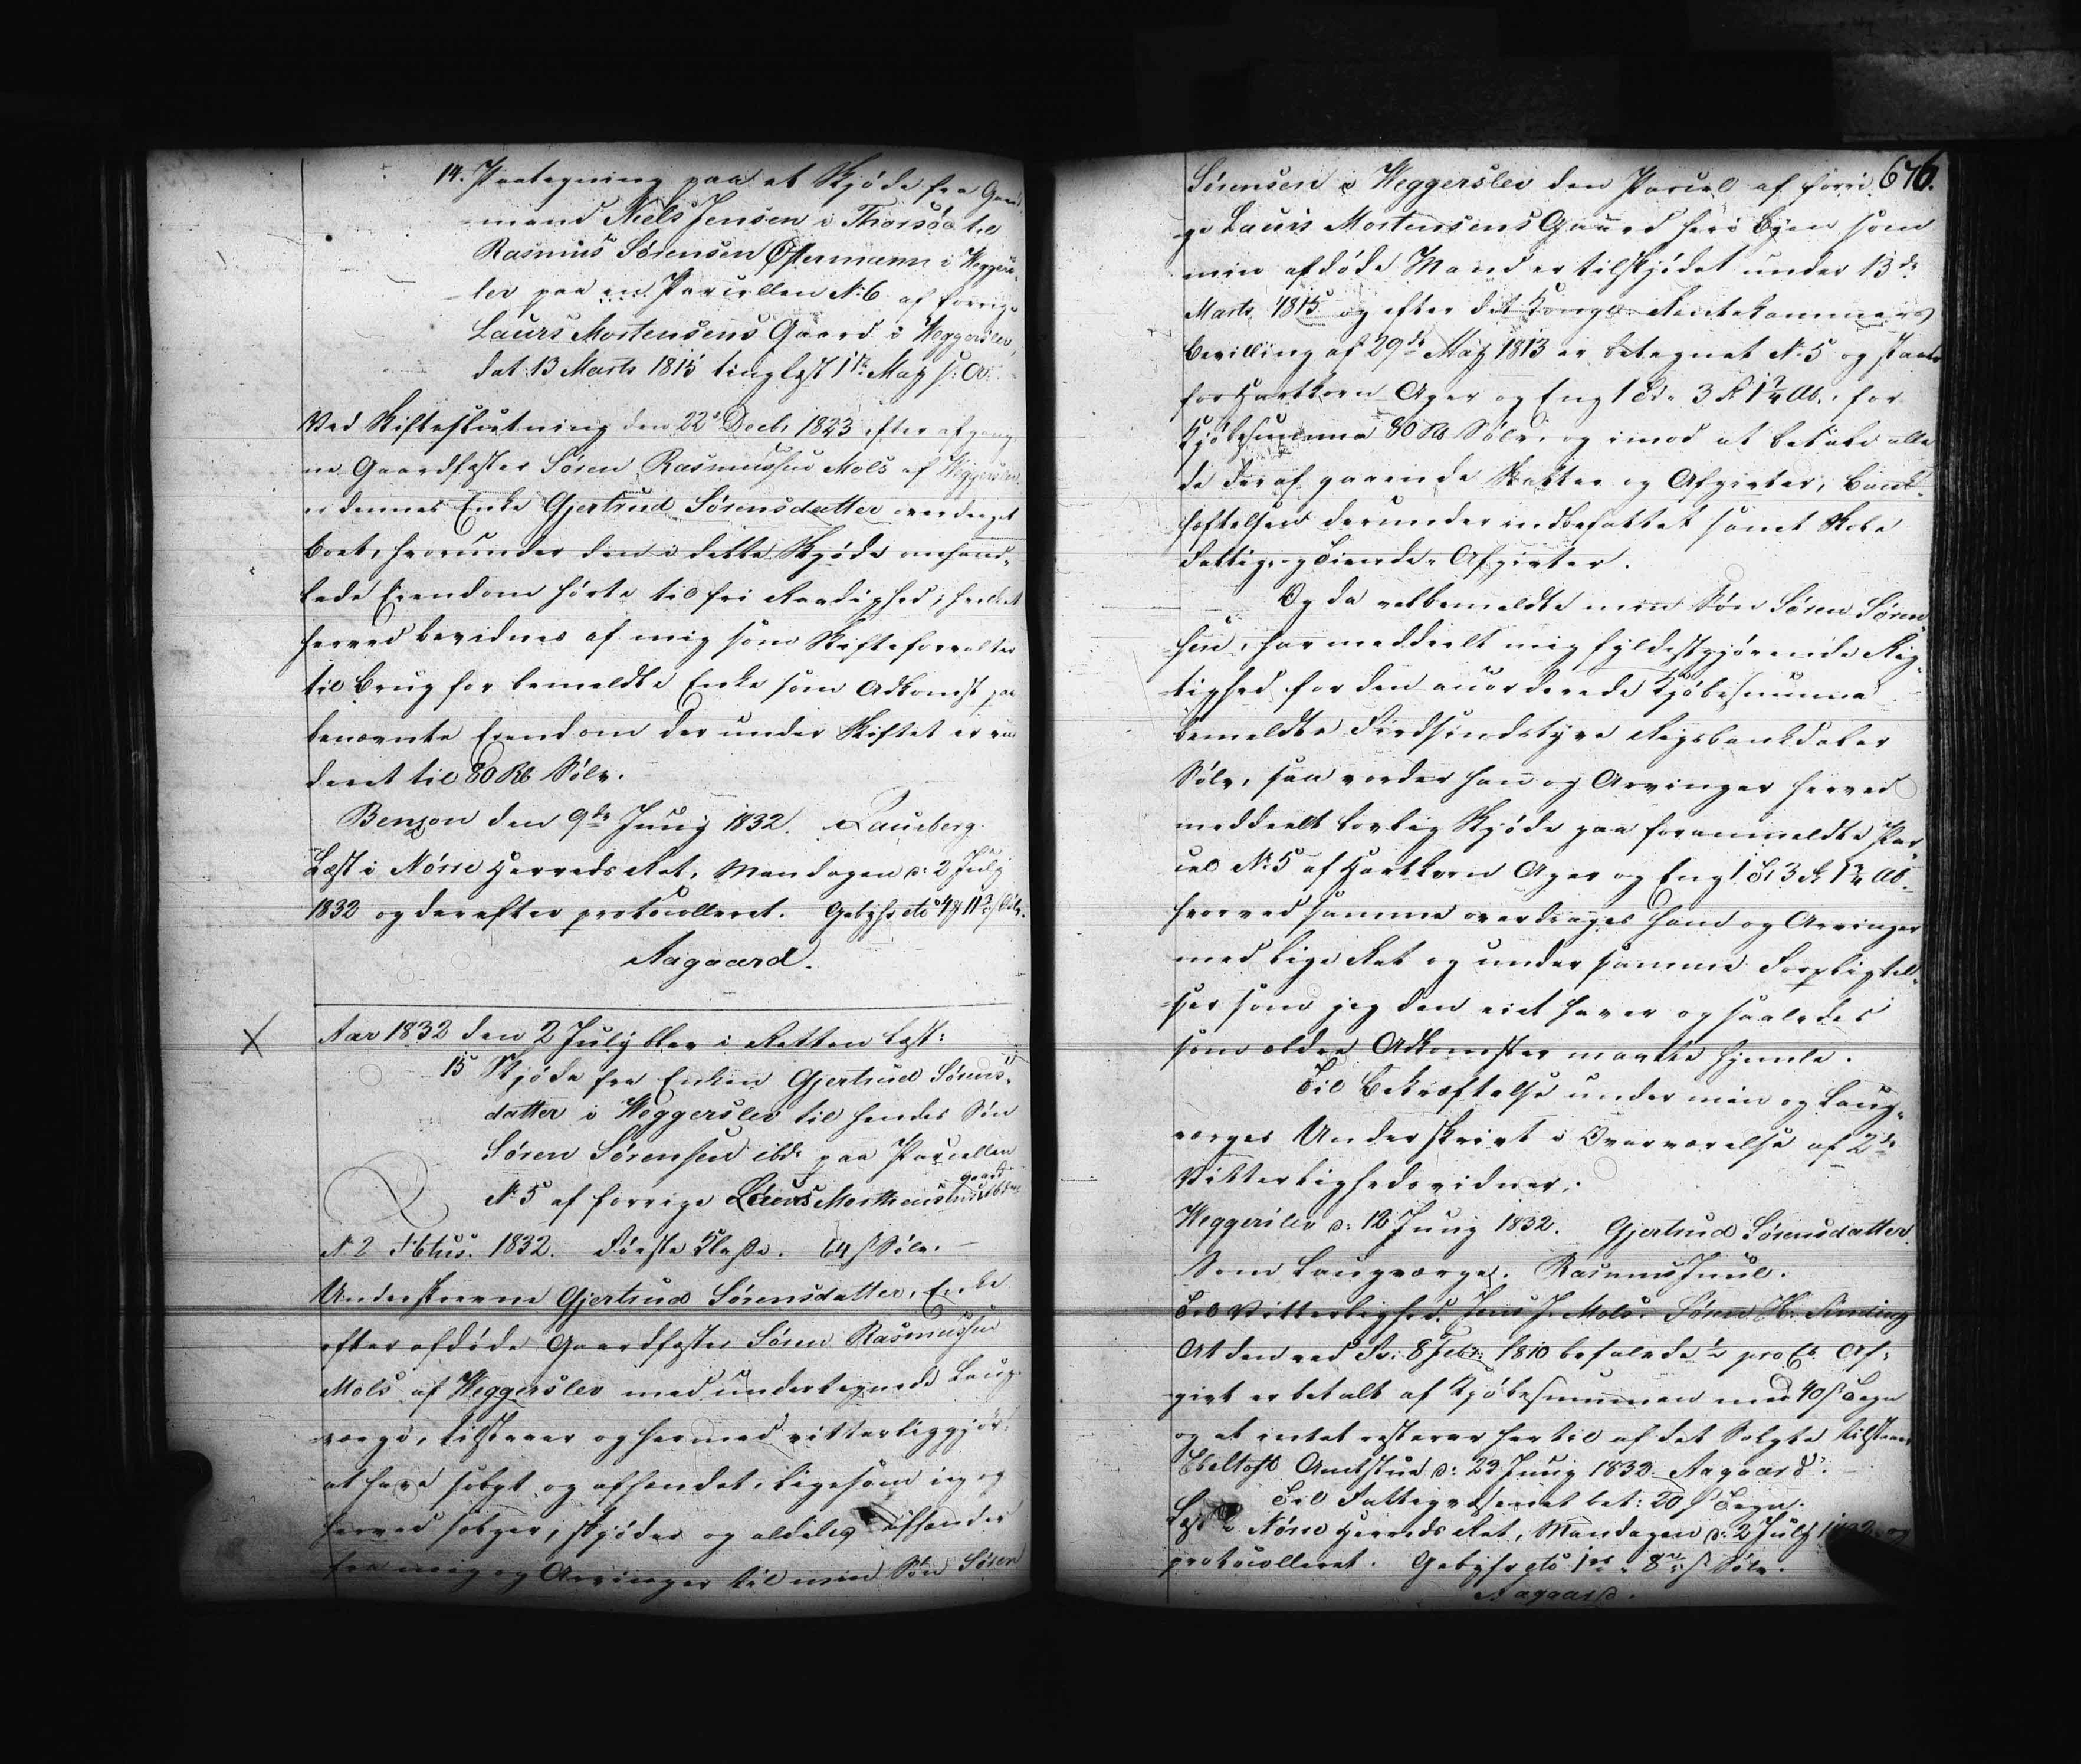 14. Paategning paa et Skjøde fra Gaard-
mand Niels Jensen i Thorsøe til
Rasmus Sørensen Østermann i Weggers-
lev paa en Parcellen No 6 af forrige
Laurs Mortensens Gaard i Weggerslev,
dat: 13 Marts 1815 tinglæst 1te May s: A:
Ved Skifteslutning den 22de Decbr 1823 efter afgang-
ne Gaardfæster Søren Rasmussen Mols af Weggerslev
er dennes Enke Gjertrud Sørensdatter overdraget
Boet, hvorunder den i dette Skjøde omhand-
lede Eiendom hørte til fri Raadighed; hvilket
herved bevidnes af mig som Skifteforvalter
til Brug for bemeldte Enke som Adkomst paa
benævnte Eiendom der under Skiftet er vur-
deret til 80 Rb Sølv.
Benzon den 9de Juny 1832.
Læst i Nørre Herreds Ret, Mandagen d: 2 July
1832 og derefter protocolleret. Gebyhr etc
Aagaard.
X Aar 1832 den 2 July blev i Retten læst:
15 Skjøde fra Enken Gjertrud Sørens-
datter i Weggerslev til hendes Søn
Søren Sørensen ibd. paa Parcellen
No 5 af forrige Laurs Morthensens Gaard ibdm
No 2 1832. Første Klasse. 64 s Sølv.
Underskrevne Gjertrud Sørensdatter, Enke
efter afdøde Gaardfæster Søren Rasmussen
Mols af Weggerslev med undertegnede Laug-
værge, tilstaaer og hermed vitterliggjør
at have solgt og afhændet, ligesom jeg og
herved sælger, skjøder og aldeles afhænder
fra mig og Arvinger til min Søn Søren
676.
Sørensen i Weggerslev den Parcel af forri-
ge Laurs Mortensens Gaard her i Byen som
min afdøde Mand er tilskjødet under 13de
Marts 1815 og efter det Kongl. Rentekammers
Bevilling af 29de May 1813 er betegnet No 5 og staaer
for Hartkorn Ager og Eng 1 Sk. 3 F. 1 3/4 Alb., for
Kjøbesumma 80 Rb Sølv, og imod at betale alle
de deraf gaaende Skatter og Afgivter, Bank-
hæftelsen derunder indbefattet samt Skole
Fattig- og Tiende-Afgivter.
Og da velbemeldte min Søn Søren Søren-
sen, har meddeelt mig fyldestgjørende Rig-
tighed for den accorderede Kjøbesumma
bemeldte Firdsindstyve Rigsbankdaler
Sølv, saa vorder han og Arvinger herved
meddeelt lovlig Skjøde paa foranmeldte Par-
cel No 5 af Hartkorn Ager og Eng 1 Sk 3 F. 1 3/4 Alb.
hvorved samme overdrages ham og Arvinger
med lige Ret og under samme Forpligtel-
ser som jeg den eiet haver og saaledes
som ældre Adkomster maatte hjemle.
Til Bekræftelse under min og Laug-
værges Underskrivt i Overværelse af 2de
Vitterlighedsvidner.
Weggerslev d: 12 Juny 1832. Gjertrud Sørensdatter
Som Laugværge. Rasmus Juul.
Til Vitterlighed. Jens J. Mols. Søren
At den ved Fr: 8 Febr: 1810 befalede 1/2 proCt Af-
givt er betalt af Kjøbesummen med 40 s Tegn
og at intet resterer hertil af det Solgte tilstaaes
Ebeltoft Amtstue d: 29 Juny 1832. Aagaard.
Til Fattigvæsenet bet: 20 s Tegn.
Læst i Nørre Herreds Ret, Mandagen d: 2 July 1832 og
protocolleret. Gebyhr etc Sølv.
Aagaard.